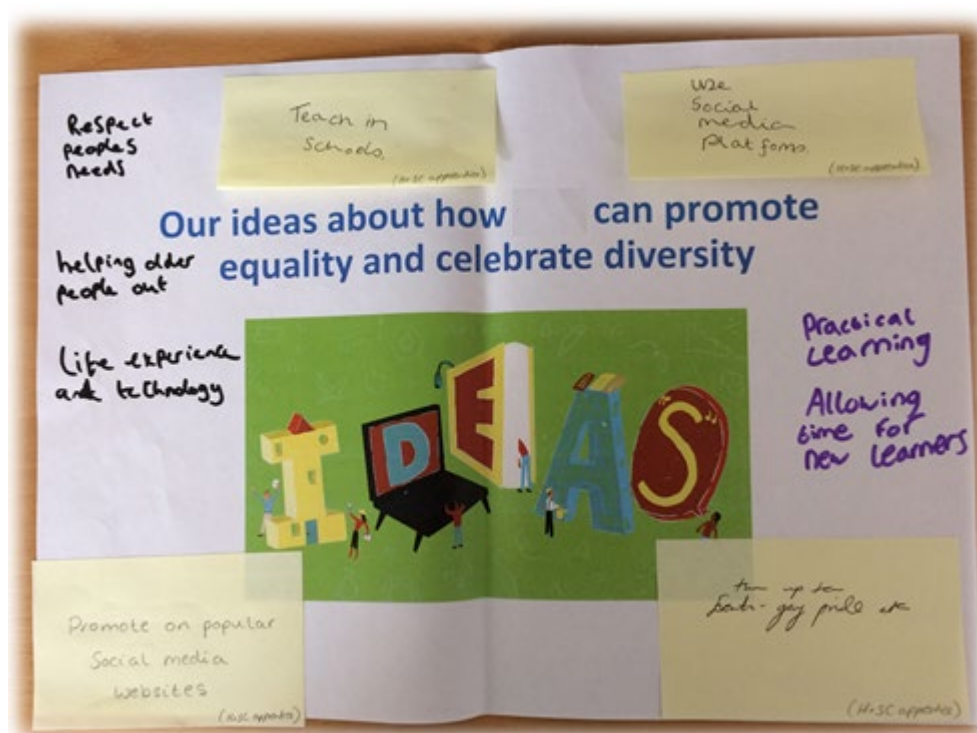 Respect
peoples
needs
Teach in
Schools.
(H+SC apprentice)
Use
Social
media
Platforms.
(H+SC apprentice)
Our ideas about how can promote
equality and celebrate diversity
helping older
people out
Life experience
and technology
IDEAS
Practical
Learning
Allowing
time for
new learners
Promote on popular
Social media
websites
(H+SC apprentice)
turn up to
gay pride etc
(H+SC apprentice)